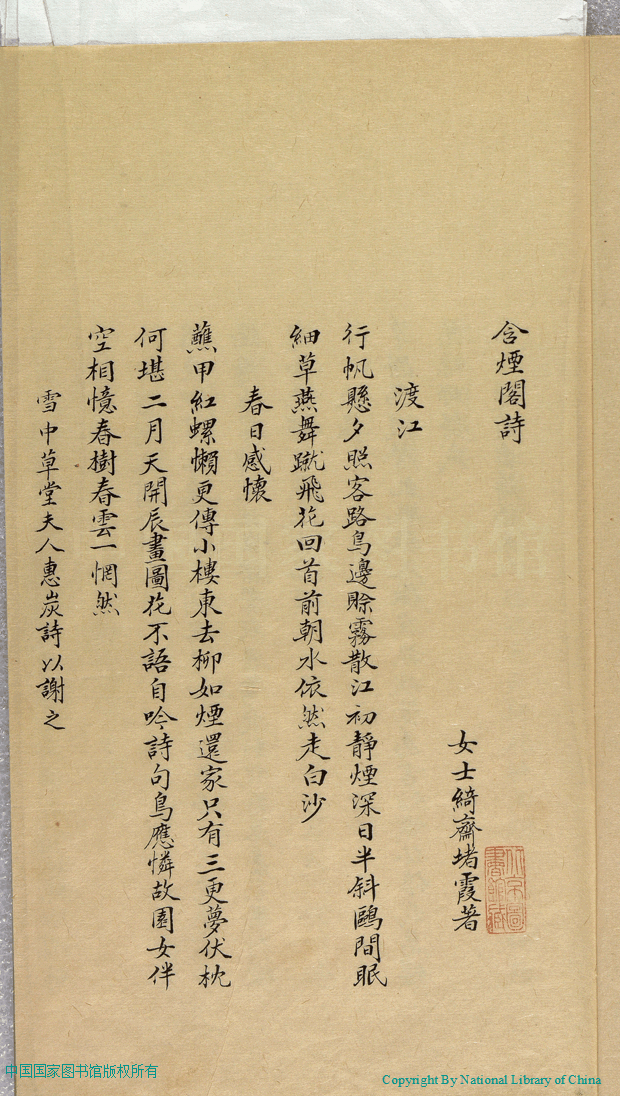 含煙閣詩
女士綺齋堵霞著
渡江
行帆懸夕照客路鳥邊賒霧散江初靜煙深日半斜鷗間眠
細草燕舞蹴飛花回首前朝水依然走白沙
春日感懷
蘸甲紅螺懶更傳小樓東去柳如煙還家只有三更夢伏枕
何堪二月天開辰畫圖花不語自吟詩句鳥應憐故園女伴
空相憶春樹春雲一惘然
雪中草堂夫人惠炭詩以謝之
中国国家图书馆版权所有
Copyright By National Library of China